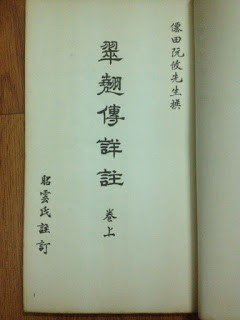 僊田阮攸先生撰
翠翹傳詳註
卷上
雲氏註訂